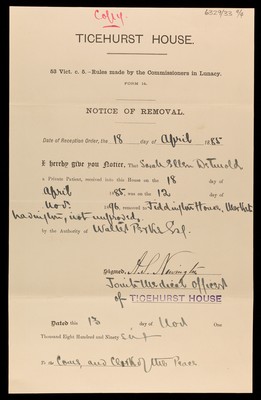 Copy
6829/33
TICEHURST HOUSE.
53 Vict. c. 5.—Rules made by the Commissioners in Lunacy.
FORM 18.
NOTICE OF REMOVAL.
Date of Reception Order, the 18 day of April 1885
I hereby give you Notice, That Sarah Ellen
a Private Patient, received into this House on the 18 day of
April 1885 was on the 12 day of
Nov. 1896 removed to Fiddington House, Market
Lavington, not improved.
by the Authority of Esq.
Signed, H. Newington
Joint Medical Officer
of TICEHURST HOUSE
Dated this 13 day of Nov One
Thousand Eight Hundred and Ninety six
To the Coms. and Clerk of the Peace